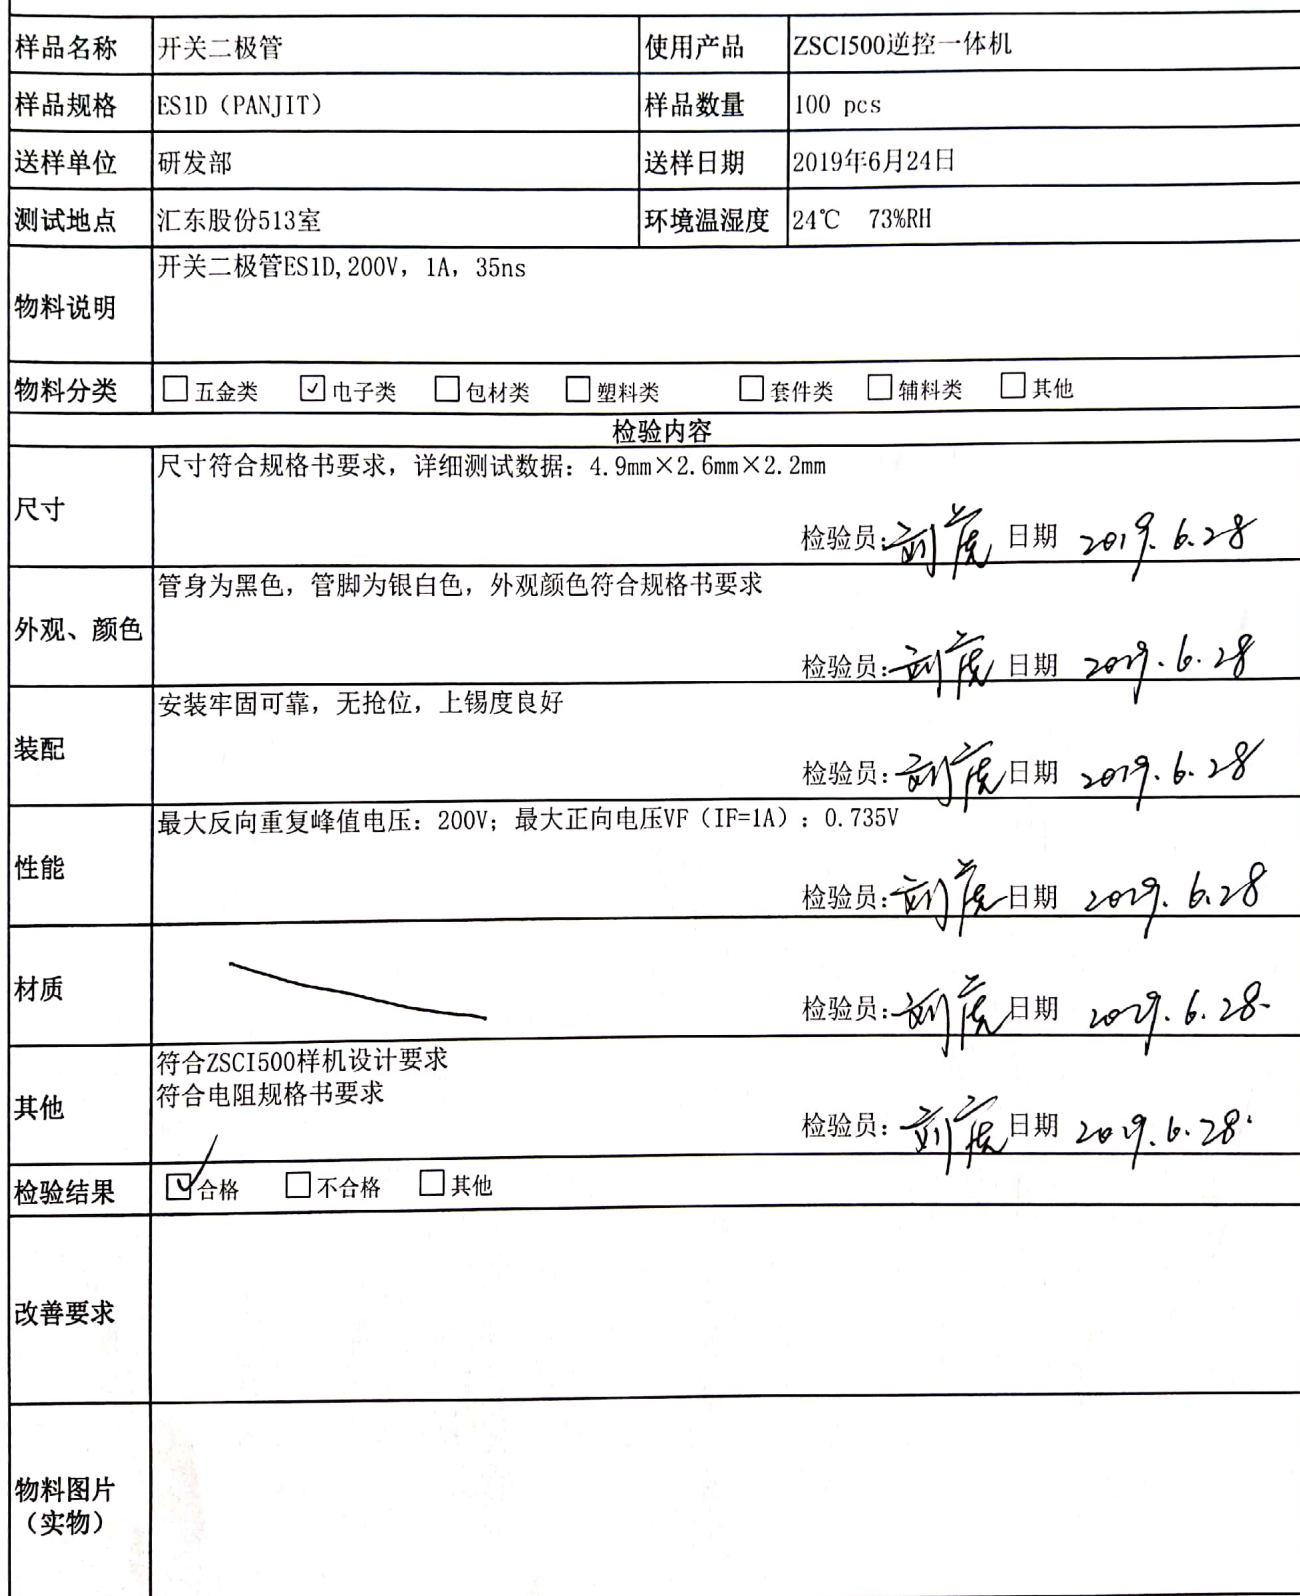 样品名称 开关二极管 使用产品 ZSCI500逆控一体机
样品规格 ES1D（PANJIT） 样品数量 100 pcs
送样单位 研发部 送样日期 2019年6月24日
测试地点 汇东股份513室 环境温湿度 24℃ 73%RH
物料说明 开关二极管ES1D,200V，1A，35ns
物料分类 五金类 电子类 包材类 塑料类 套件类 辅料类 其他
检验内容
尺寸 尺寸符合规格书要求，详细测试数据：4.9mm×2.6mm×2.2mm
检验员: 日期 2019.6.28
外观、颜色 管身为黑色，管脚为银白色，外观颜色符合规格书要求
检验员: 日期 2019.6.28
装配 安装牢固可靠，无抢位，上锡度良好
检验员: 日期 2019.6.28
性能 最大反向重复峰值电压：200V；最大正向电压VF（IF=1A）：0.735V
检验员: 日期 2019.6.28
材质
检验员: 日期 2019.6.28.
其他 符合ZSCI500样机设计要求
符合电阻规格书要求
检验员: 日期 2019.6.28.
检验结果 合格 不合格 其他
改善要求
物料图片
（实物）